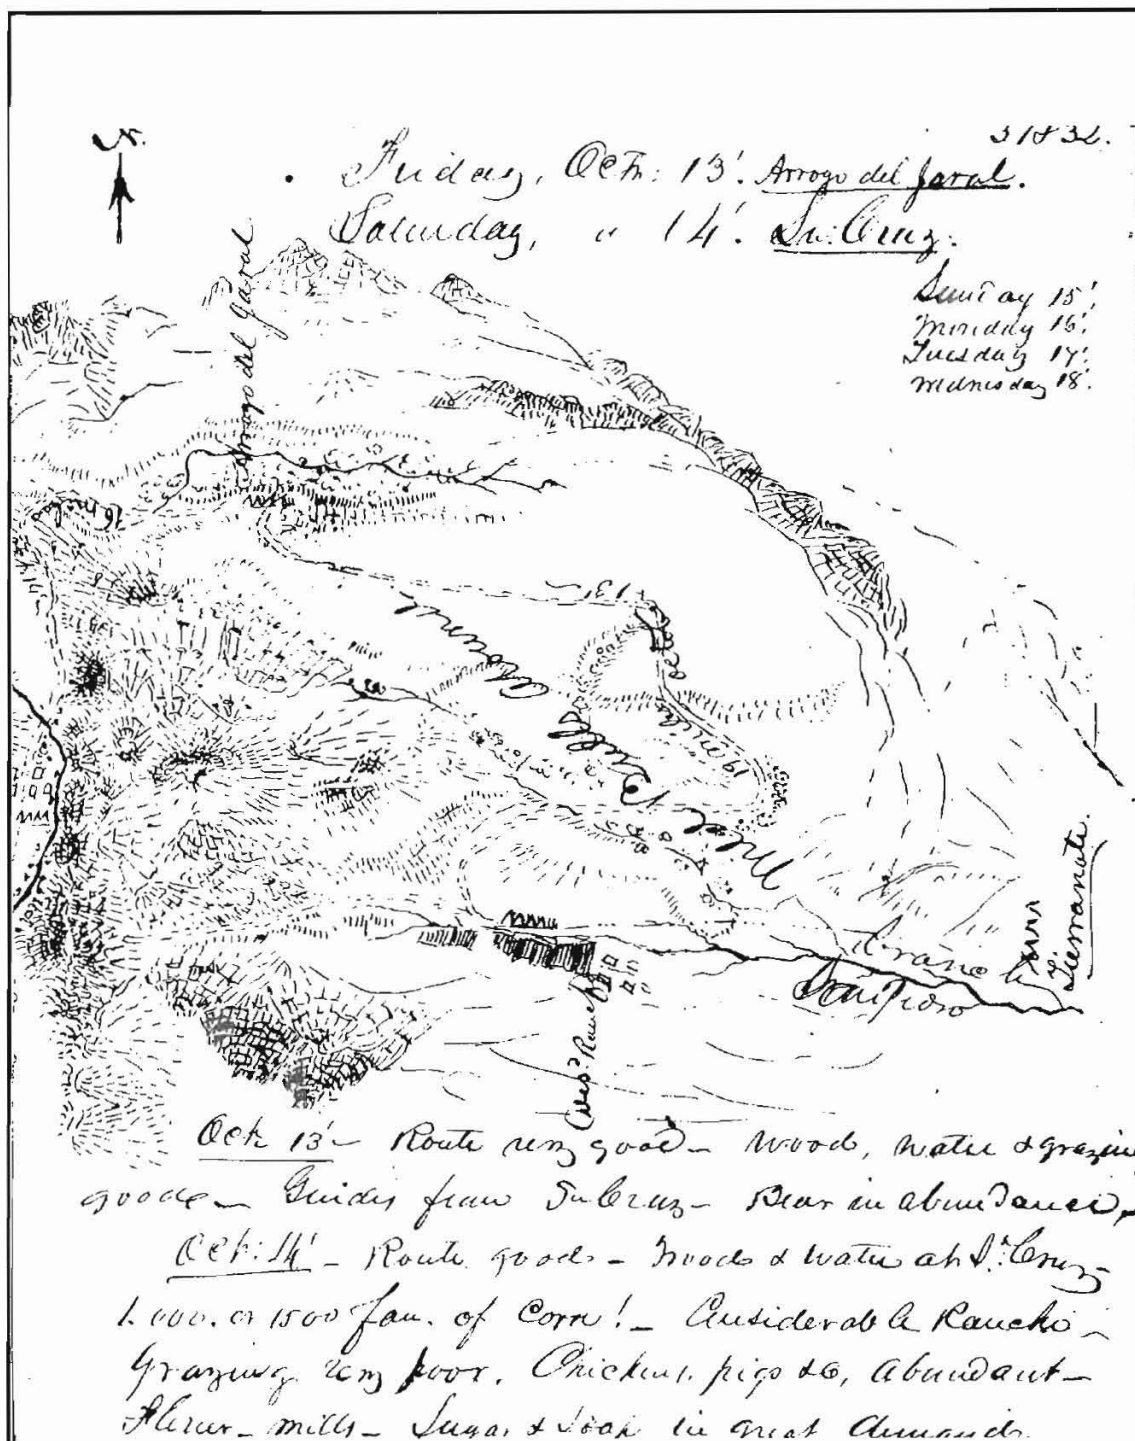 N.
31832.
Friday, Octr: 13'. Arroyo del Jaral.
Saturday, " 14'. Sta Cruz.
Sunday 15'.
Monday 16'.
Tuesday 17'.
Wednesday 18'.
Arroyo del Jaral
16 miles
13'
Wild Bulls abound
19 miles
San Pedro
Tierranate.
Rancho
Oct 13'- Route very good- Wood, Water & grazing
good- Guides from Sta Cruz- Bear in abundance,-
Oct: 14'- Route good- Wood & Water at Sta Cruz-
1.000. or 1500 fan. of Corn!- Considerable Rancho-
Grazing very poor. Chickens, pigs &c, abundant-
Flour- mills- Sugar & Soap in great demand.